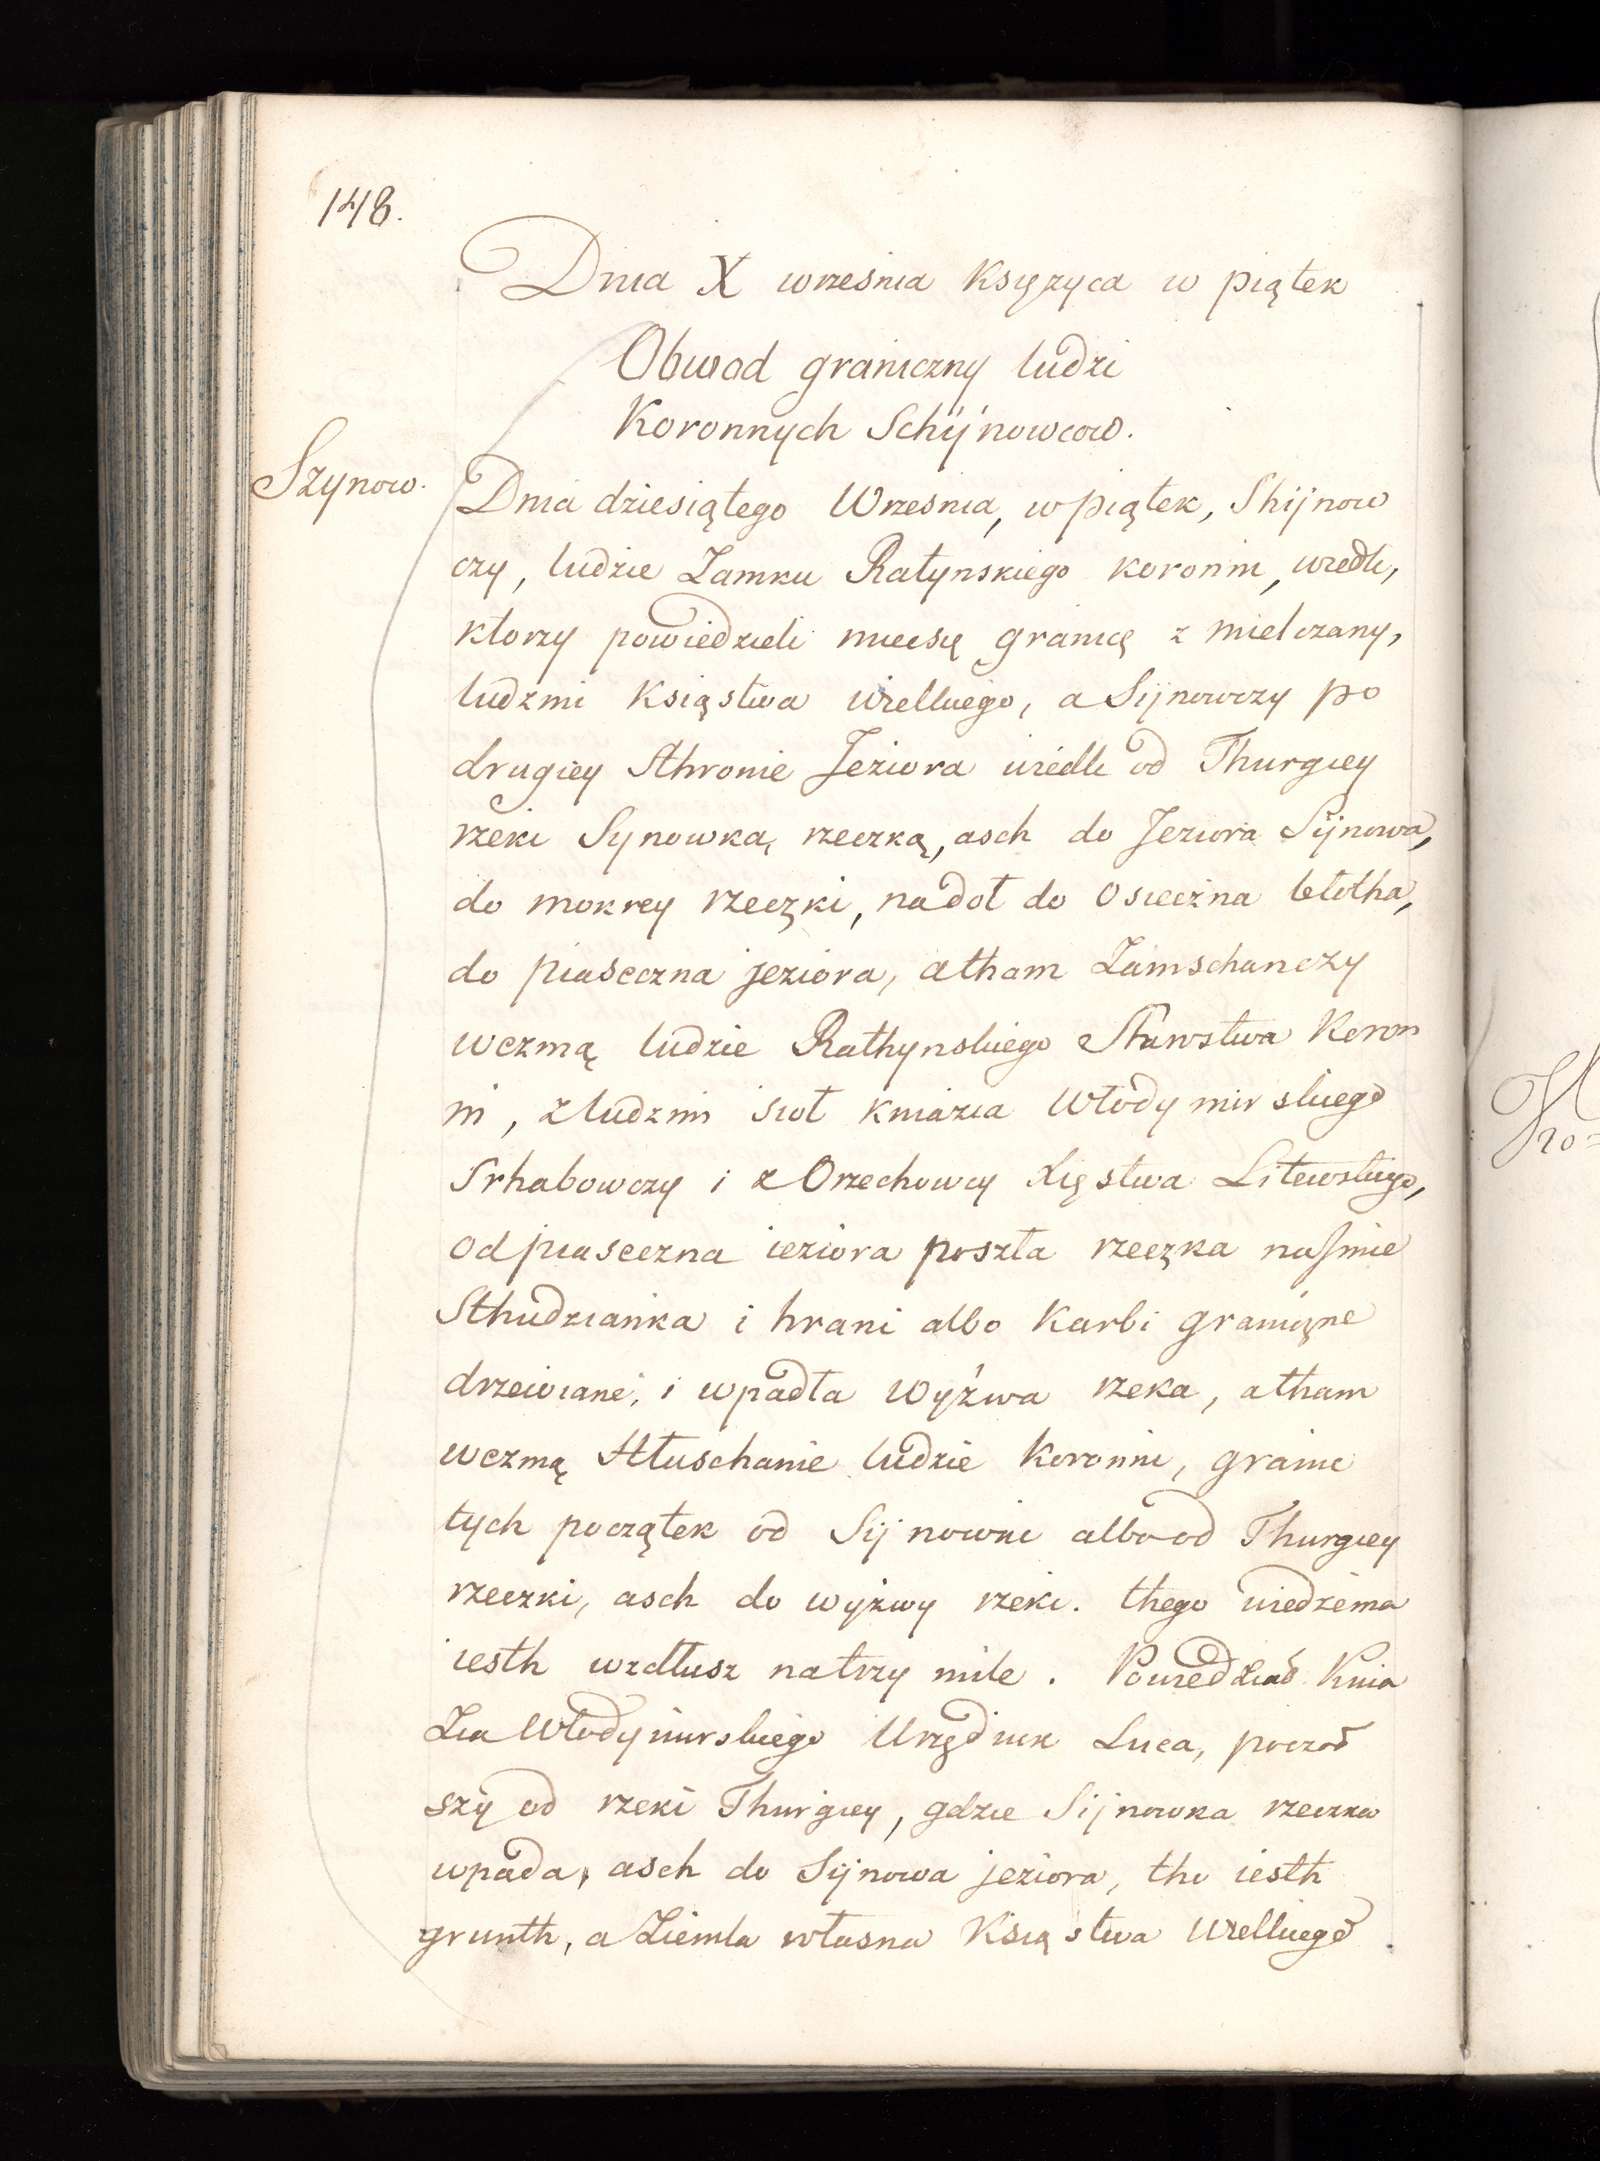 148.
Dnia X wrzesnia Księzyca w piątek
Obwod graniczny ludzi
Koronnych Schijnowcow.
Szynow.
Dnia dziesiątego Wrzesnia, w piątek, Shijnow
czy, ludzie Zamku Ratynskiego koronni, wiedli,
ktorzy powiedzieli miecsę granicę z mielczany,
ludzmi Ksiąstwa wielkiego, a Sijnowczy po
drugiey Sthronie Jeziora wiedli od Thurgiey
rzeki Synowką rzeczką, asch do Jeziora Sijnowa,
do mokrey rzeczki, nadoł do Osieczna błotha,
do piaseczna jeziora, atham Zamschanczy
wezmą ludzie Rathynskiego Starostwa Koron
ni, z ludzmi sioł kniazia Włodymirskiego
Srhabowczy i z Orzechowcy Xięstwa Litewskiego,
od piaseczna ieziora poszła rzeczka naJmie
Sthudzianka i hrani albo Karbi graniczne
drzewiane, i wpadła Wyżwa rzeka, atham
wezmą Hłuschanie ludzie Koronni, granic
tych początek od Sijnowki albo od Thurgiey
rzeczki, asch do wyżwy rzeki. thego wiedzenia
iesth wzdłusz na trzy mile. Powiedział Knia
Zia Włodymirskiego Urzędnik Luca, począł
szy od rzeki Thurgiey, gdzie Sijnowka rzeczka
wpada, asch do Sijnowa jeziora, tho iesth
grunth, a Ziemla własna Ksiąstwa Wielkiego